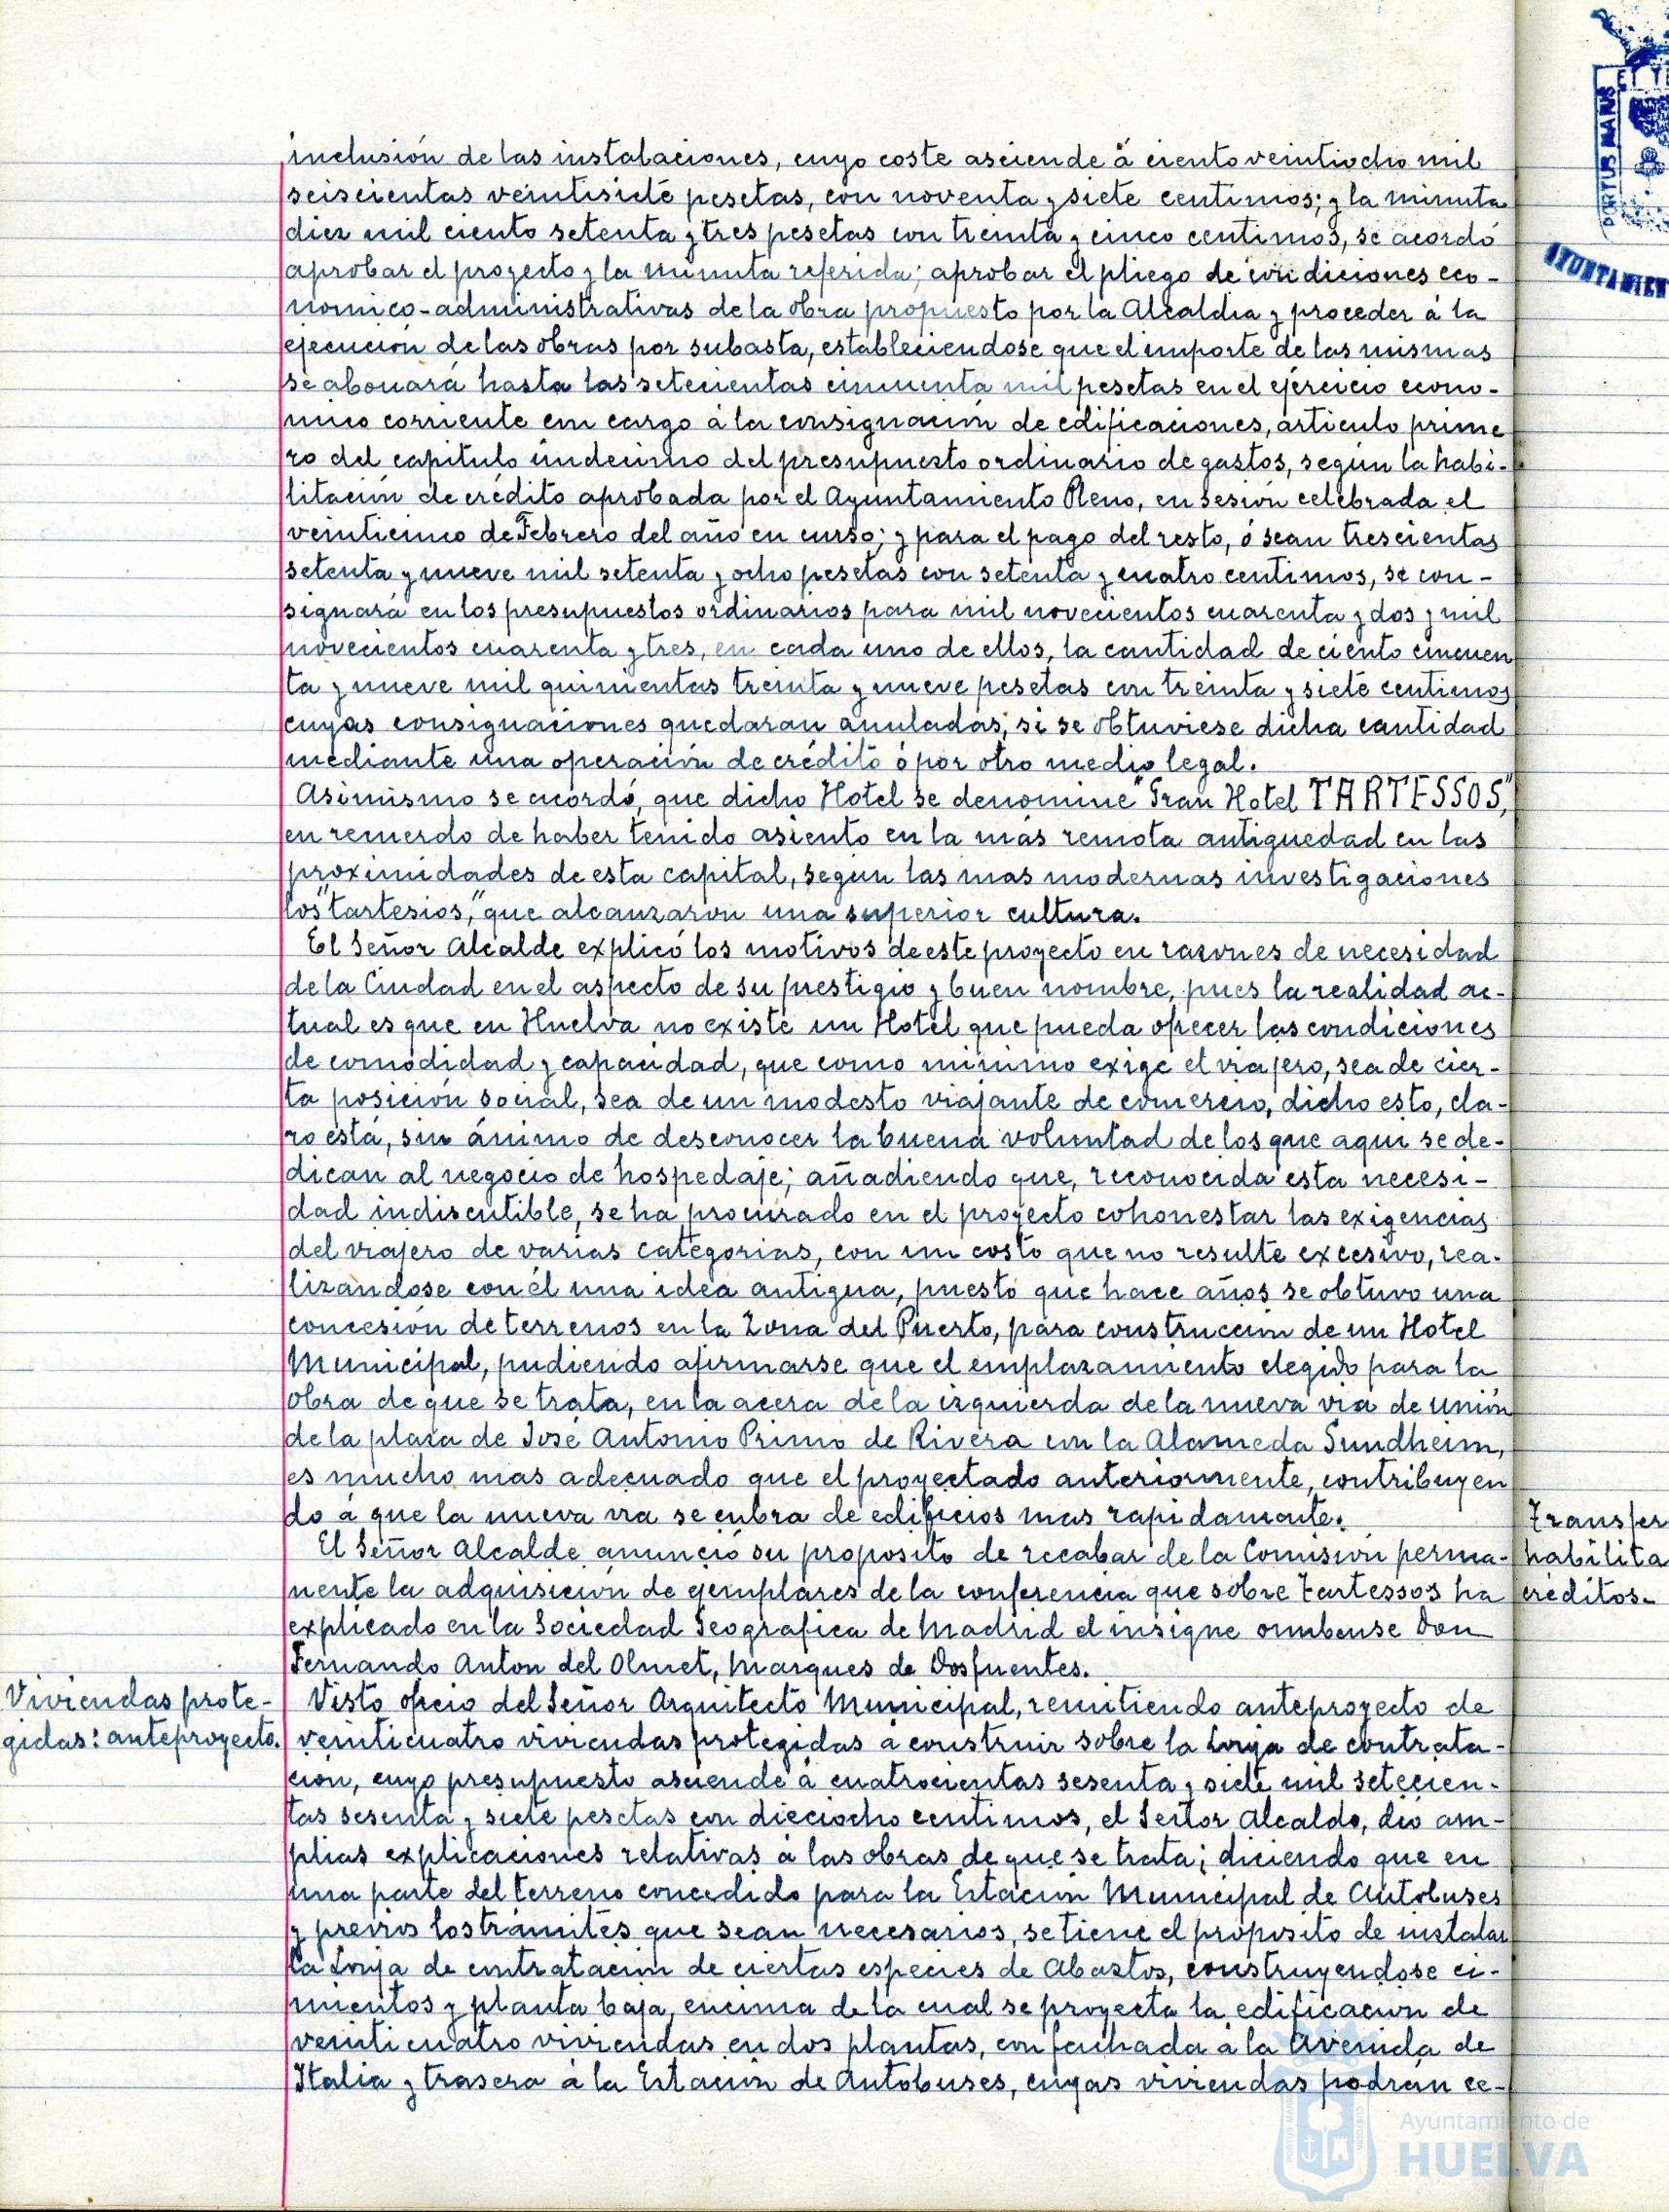 inclusión de las instalaciones, cuyo coste asciende á ciento veintiocho mil
seiscientas veintisiete pesetas, con noventa y siete centimos; y la minuta
diez mil ciento setenta y tres pesetas con treinta y cinco centimos, se acordó
aprobar el proyecto y la minuta referida; aprobar el pliego de condiciones eco-
nomico-administrativas de la obra propuesto por la Alcaldia y proceder á la
ejecución de las obras por subasta, estableciendose que el importe de las mismas
se abonará hasta las setecientas cincuenta mil pesetas en el ejercicio econo-
mico corriente con cargo á la consignación de edificaciones, articulo prime
ro del capitulo undecimo del presupuesto ordinario de gastos, según la habi-
litación de crédito aprobada por el Ayuntamiento Pleno, en sesión celebrada el
veinticinco de Febrero del año en curso; y para el pago del resto, ó sean trescientas
setenta y nueve mil setenta y ocho pesetas con setenta y cuatro centimos, se con-
signará en los presupuestos ordinarios para mil novecientos cuarenta y dos y mil
novecientos cuarenta y tres, en cada uno de ellos, la cantidad de ciento cincuen
ta y nueve mil quinientas treinta y nueve pesetas con treinta y siete centimos
cuyas consignaciones quedaran anuladas, si se obtuviese dicha cantidad
mediante una operación de crédito ó por otro medio legal.
Asimismo se acordó, que dicho Hotel se denomine "Gran Hotel TARTESSOS,"
en recuerdo de haber tenido asiento en la más remota antiguedad en las
proximidades de esta capital, según las mas modernas investigaciones
los "tartesios," que alcanzaron una superior cultura.
El Señor Alcalde explicó los motivos de este proyecto en razones de necesidad
de la Ciudad en el aspecto de su prestigio y buen nombre, pues la realidad ac-
tual es que en Huelva no existe un Hotel que pueda ofrecer las condiciones
de comodidad y capacidad, que como minimo exige el viajero, sea de cier-
ta posición social, sea de un modesto viajante de comercio, dicho esto, cla-
ro está, sin ánimo de desconocer la buena voluntad de los que aqui se de-
dican al negocio de hospedaje; añadiendo que, reconocida esta necesi-
dad indiscutible, se ha procurado en el proyecto cohonestar las exigencias
del viajero de varias categorias, con un costo que no resulte excesivo, rea-
lizandose con él una idea antigua, puesto que hace años se obtuvo una
concesión de terrenos en la Zona del Puerto, para construccion de un Hotel
Municipal, pudiendo afirmarse que el emplazamiento elegido para la
obra de que se trata, en la acera de la izquierda de la nueva via de unión
de la plaza de José Antonio Primo de Rivera con la Alameda Sundheim,
es mucho mas adecuado que el proyectado anteriormente, contribuyen
do á que la nueva via se cubra de edificios mas rapidamente.
El Señor Alcalde anunció su proposito de recabar de la Comisión perma-
nente la adquisición de ejemplares de la conferencia que sobre Tartessos ha
explicado en la Sociedad Geografica de Madrid el insigne onubense Don
Fernando Anton del Olmet, Marques de Dosfuentes.
Viviendas prote-
gidas: anteproyecto.
Visto oficio del Señor Arquitecto Municipal, remitiendo anteproyecto de
veinticuatro viviendas protegidas a construir sobre la Lonja de contrata-
cion, cuyo presupuesto asciende á cuatrocientas sesenta y siete mil setecien-
tas sesenta y siete pesetas con dieciocho centimos, el Señor Alcalde, dió am-
plias explicaciones relativas á las obras de que se trata; diciendo que en
una parte del terreno concedido para la Estación Municipal de Autobuses
y previos los trámites que sean necesarios, se tiene el proposito de instalar
la Lonja de contratación de ciertas especies de Abastos, construyendose ci-
mientos y planta baja, encima de la cual se proyecta la edificacion de
veinticuatro viviendas en dos plantas, con fachada á la Avenida de
Italia y trasera á la Estación de Autobuses, cuyas viviendas podrán ce-
Transfer
habilita
creditos.-
PORTUS MARIS
AYUNTAMIEN
Ayuntamiento de
HUELVA